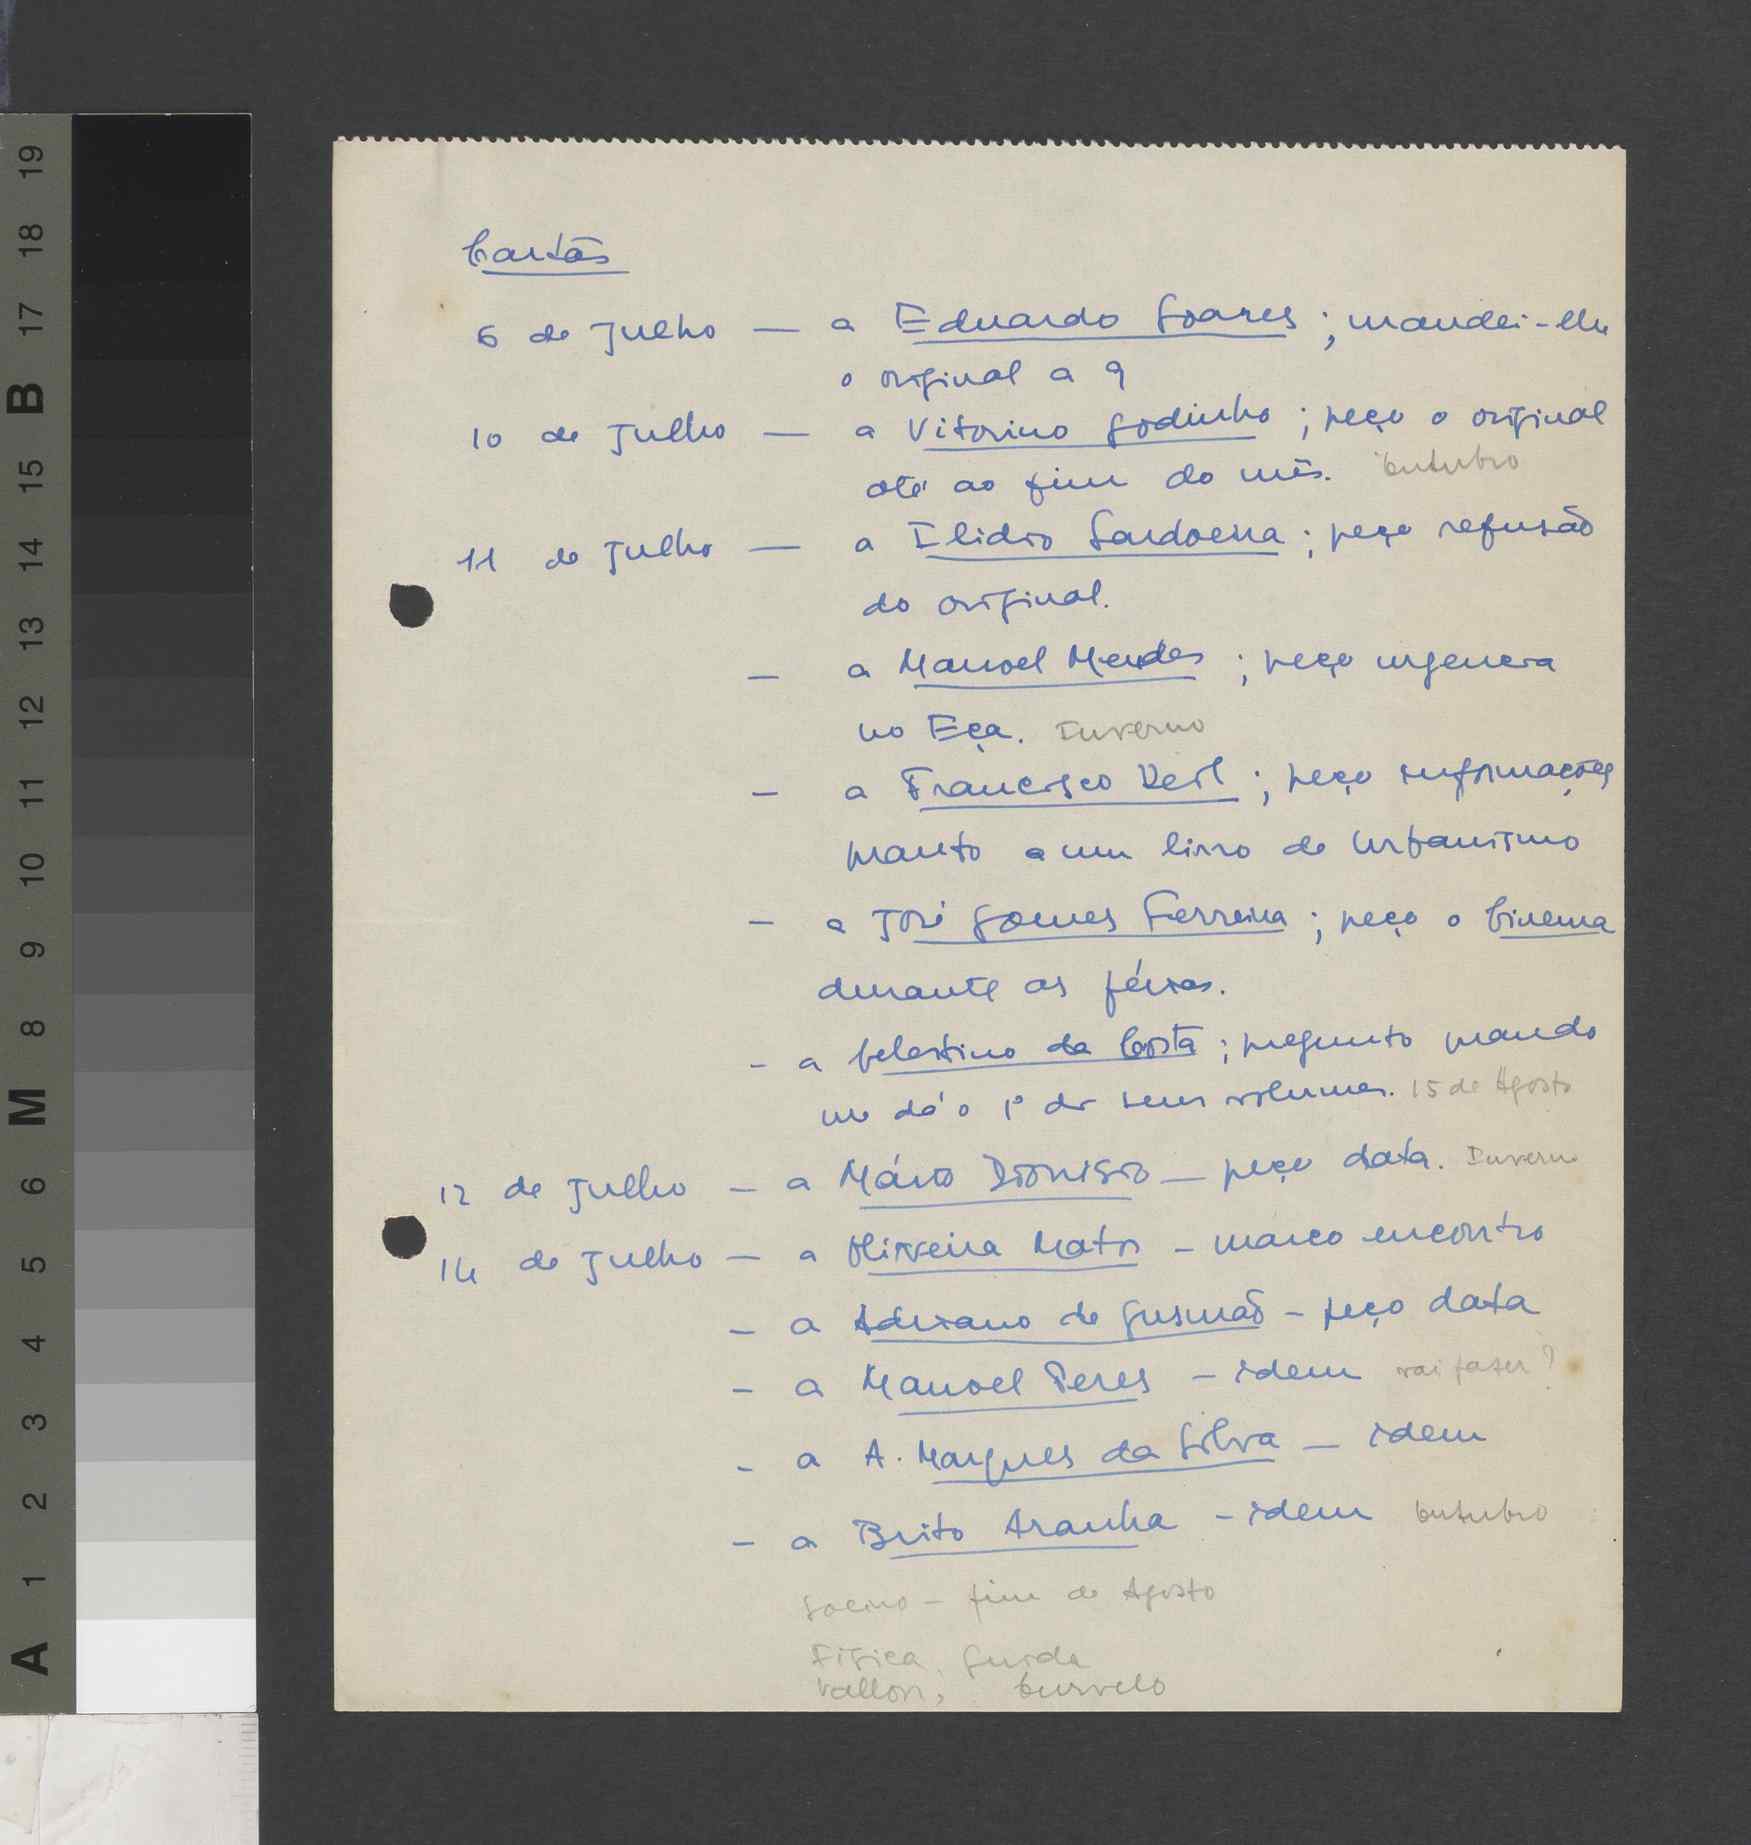 Cartas
6 de Julho — a Eduardo Soares; mandei-lhe
o original a 9
10 de Julho — a Vitorino Godinho; peço o original
até ao fim do mês. Outubro
11 de Julho — a Ilidio Sardoeira; peço refusão
do original.
— a Manoel Mendes; peço urgencia
no Eça. Inverno
— a Francisco Keil; peço informações
quanto a um livro de Urbanismo
— a José Gomes Ferreira; peço o Cinema
durante as férias.
- a Celestino da Costa; pregunto quando
me dá o 1º dos seus volumes. 15 de Agosto
12 de Julho — a Mário Dionisio — peço data. Inverno
14 de Julho — a Oliveira Matos — marco encontro
— a Adriano de Gusmão — peço data
— a Manoel Peres — idem vai fazer?
- a A. Marques da Silva — idem
— a Brito Aranha — idem Outubro
— fim de Agosto
Fisica, Guida
Wallon,